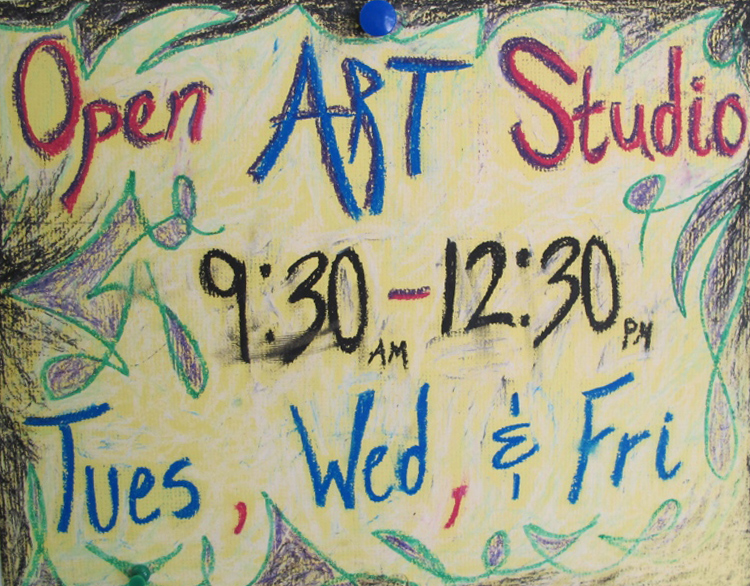 Open ART Studio
9:30 AM - 12:30 PM
Tues, Wed, & Fri